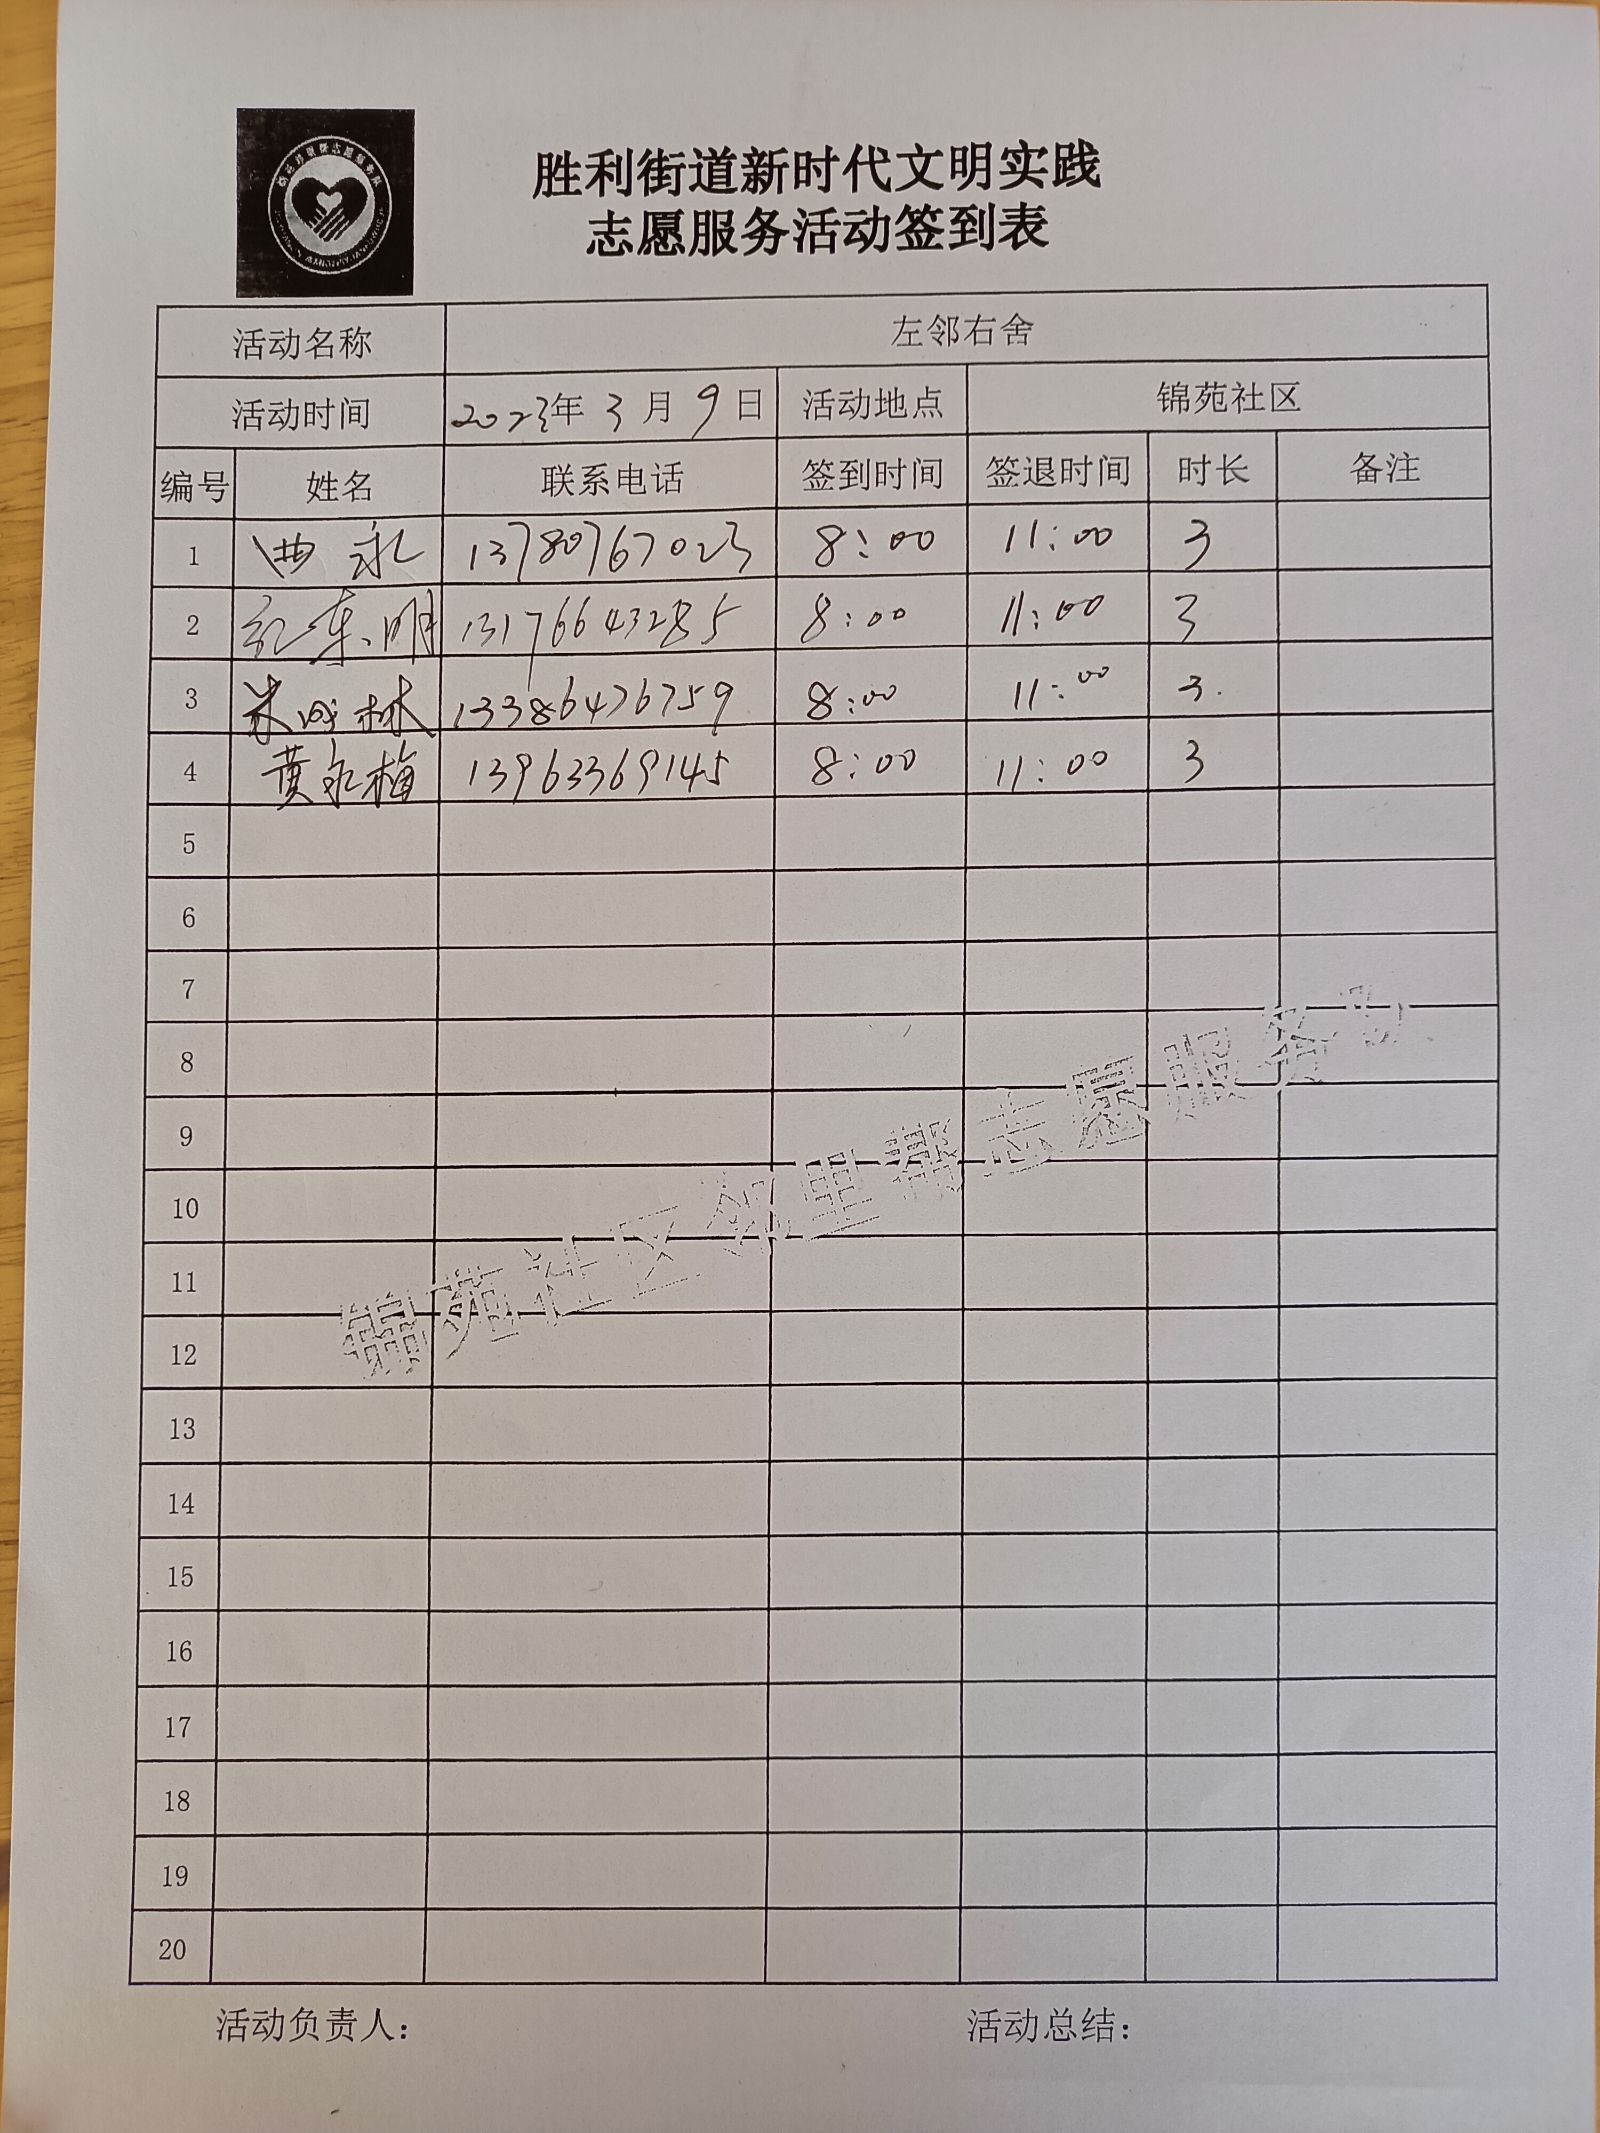 胜利街道新时代文明实践
志愿服务活动签到表
活动名称 左邻右舍
活动时间 2023年3月9日 活动地点 锦苑社区
编号 姓名 联系电话 签到时间 签退时间 时长 备注
1 永 13780767023 8:00 11:00 3
2 东明 13176643285 8:00 11:00 3
3 林 13386476759 8:00 11:00 3.
4 黄永梅 13963369145 8:00 11:00 3
5
6
7
8
9
10
11
12
13
14
15
16
17
18
19
20
锦苑社区邻里帮志愿服务队
活动负责人： 活动总结：